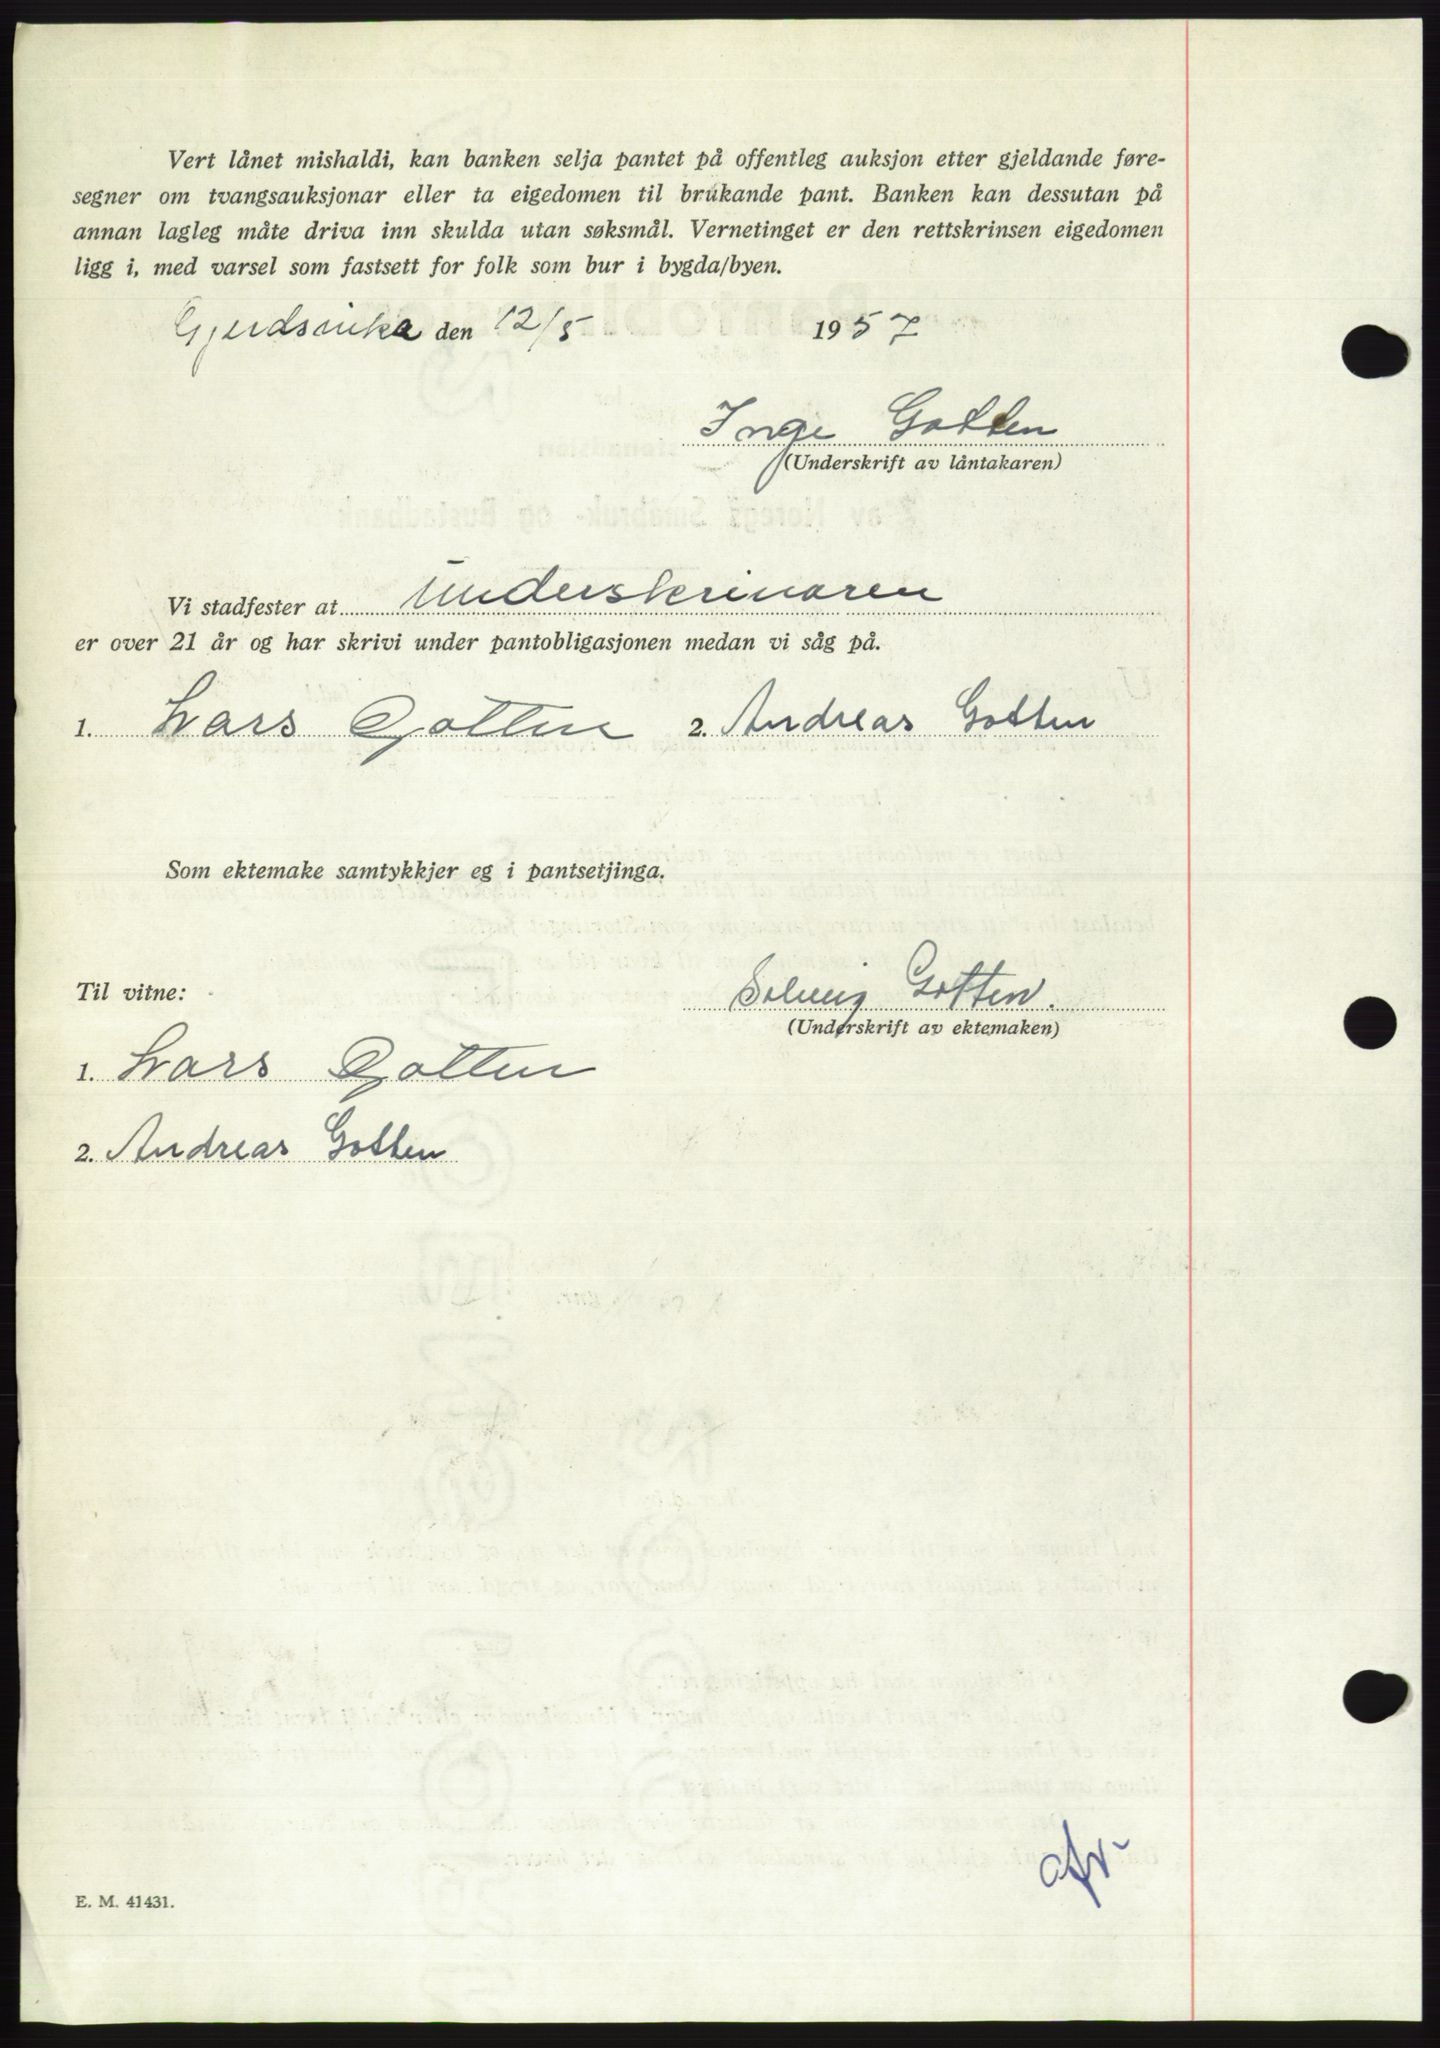 Vert lånet mishaldi, kan banken selja pantet på offentleg auksjon etter gjeldande føre-
segner om tvangsauksjonar eller ta eigedomen til brukande pant. Banken kan dessutan på
annan lagleg måte driva inn skulda utan søksmål. Vernetinget er den rettskrinsen eigedomen
ligg i, med varsel som fastsett for folk som bur i bygda/byen.
Gjerdsvika den 12/5 1957
Inge Gotten
(Underskrift av låntakaren)
Vi stadfester at underskrivaren
er over 21 år og har skrivi under pantobligasjonen medan vi såg på.
1. Lars Gotten 2. Andreas Gotten
Som ektemake samtykkjer eg i pantsetjinga.
Til vitne: Solveig Gotten.
(Underskrift av ektemaken)
1. Lars Gotten
2. Andreas Gotten
E. M. 41431.